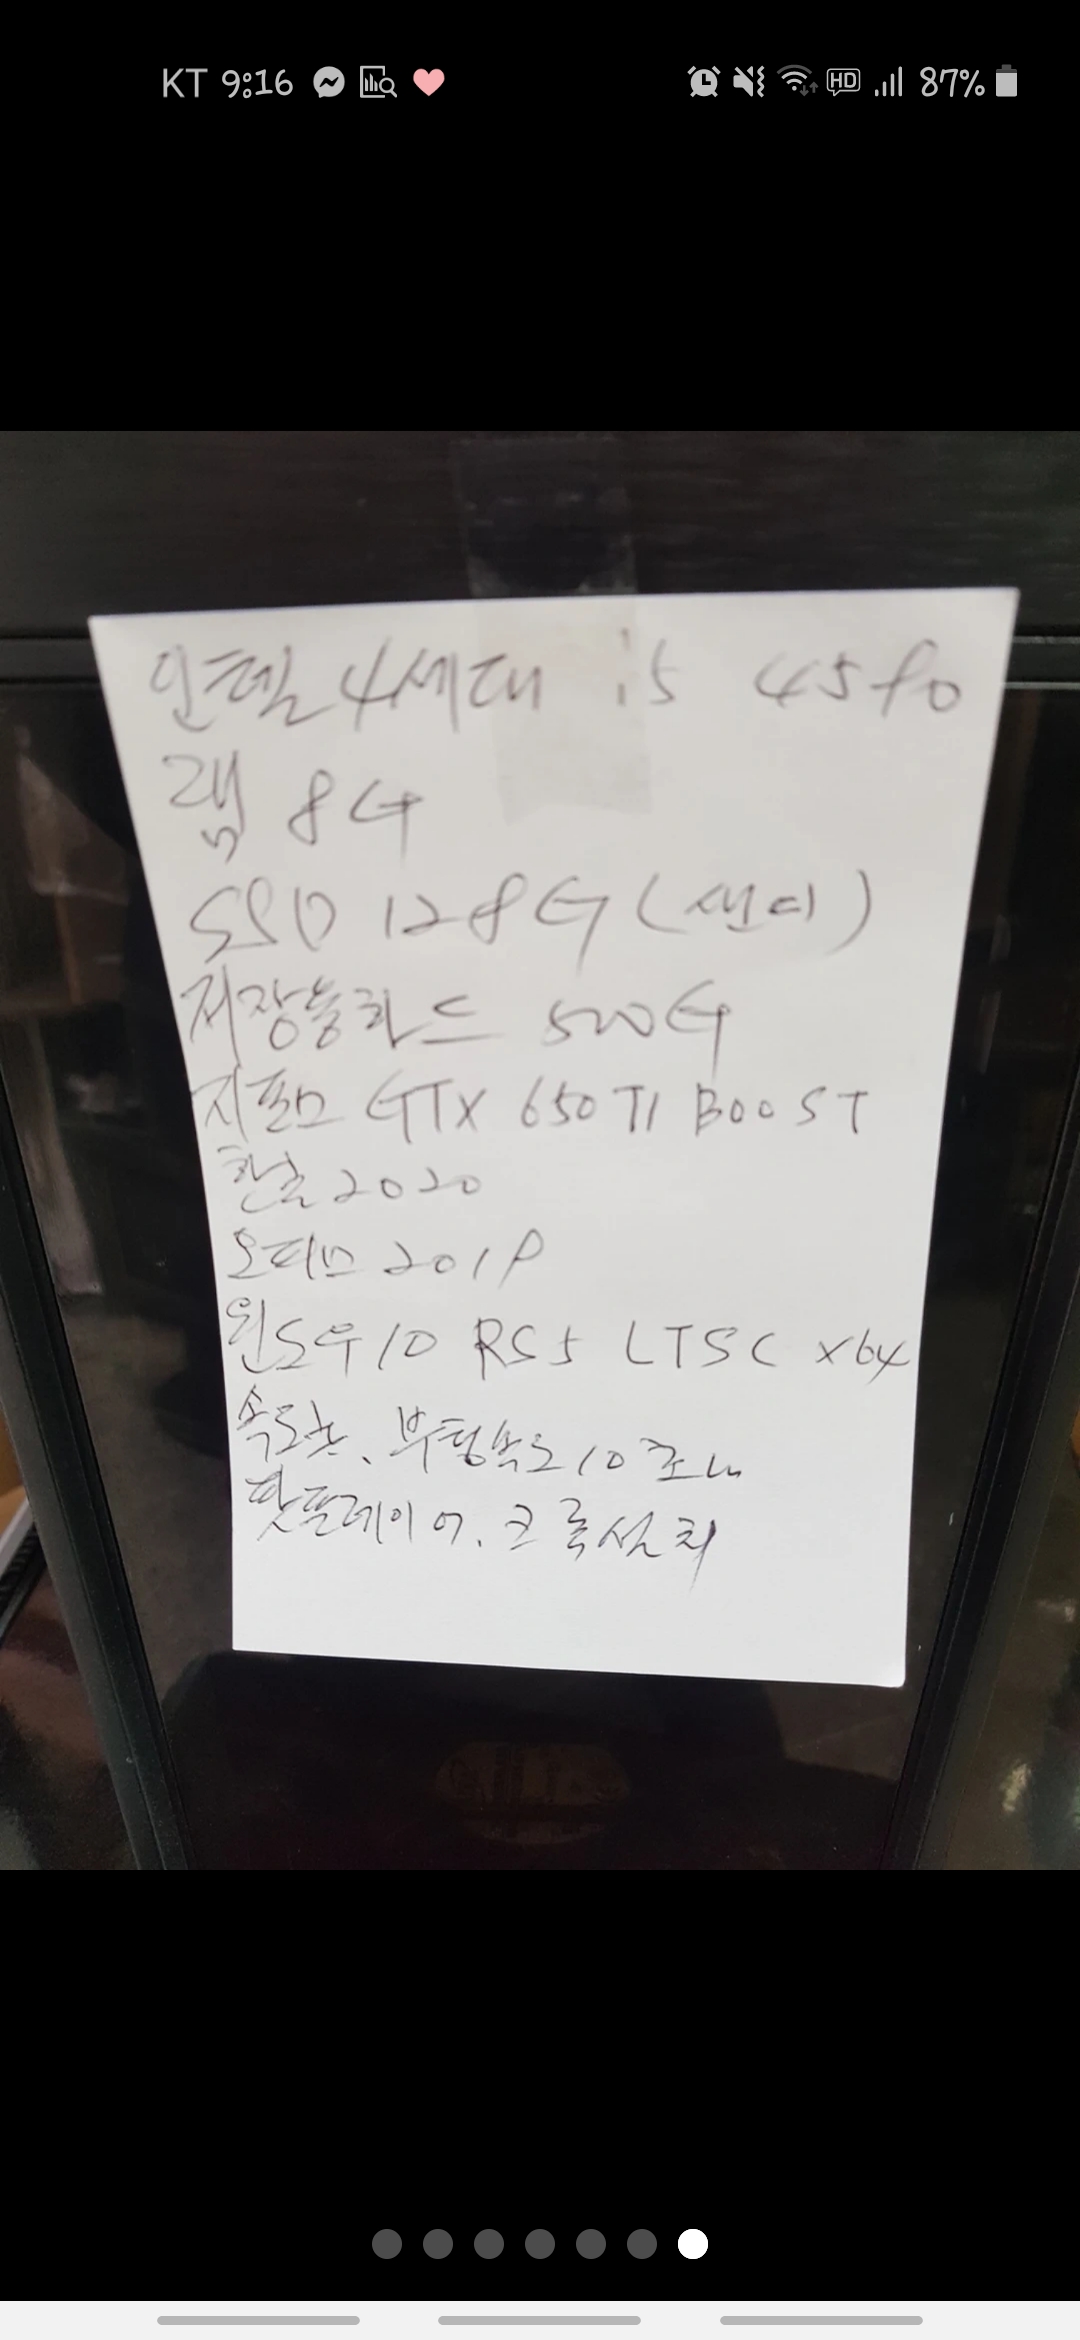 KT 9:16 HD 87%
인텔 4세대 i5 4590
램 8G
SSD 128G (샌디)
저장용하드 500G
지포스 GTX 650 TI BOOST
한글 2020
오피스 2019
윈도우10 RS5 LTSC x64
속도쾌, 부팅속도 10초
팟플레이어, 크롬설치